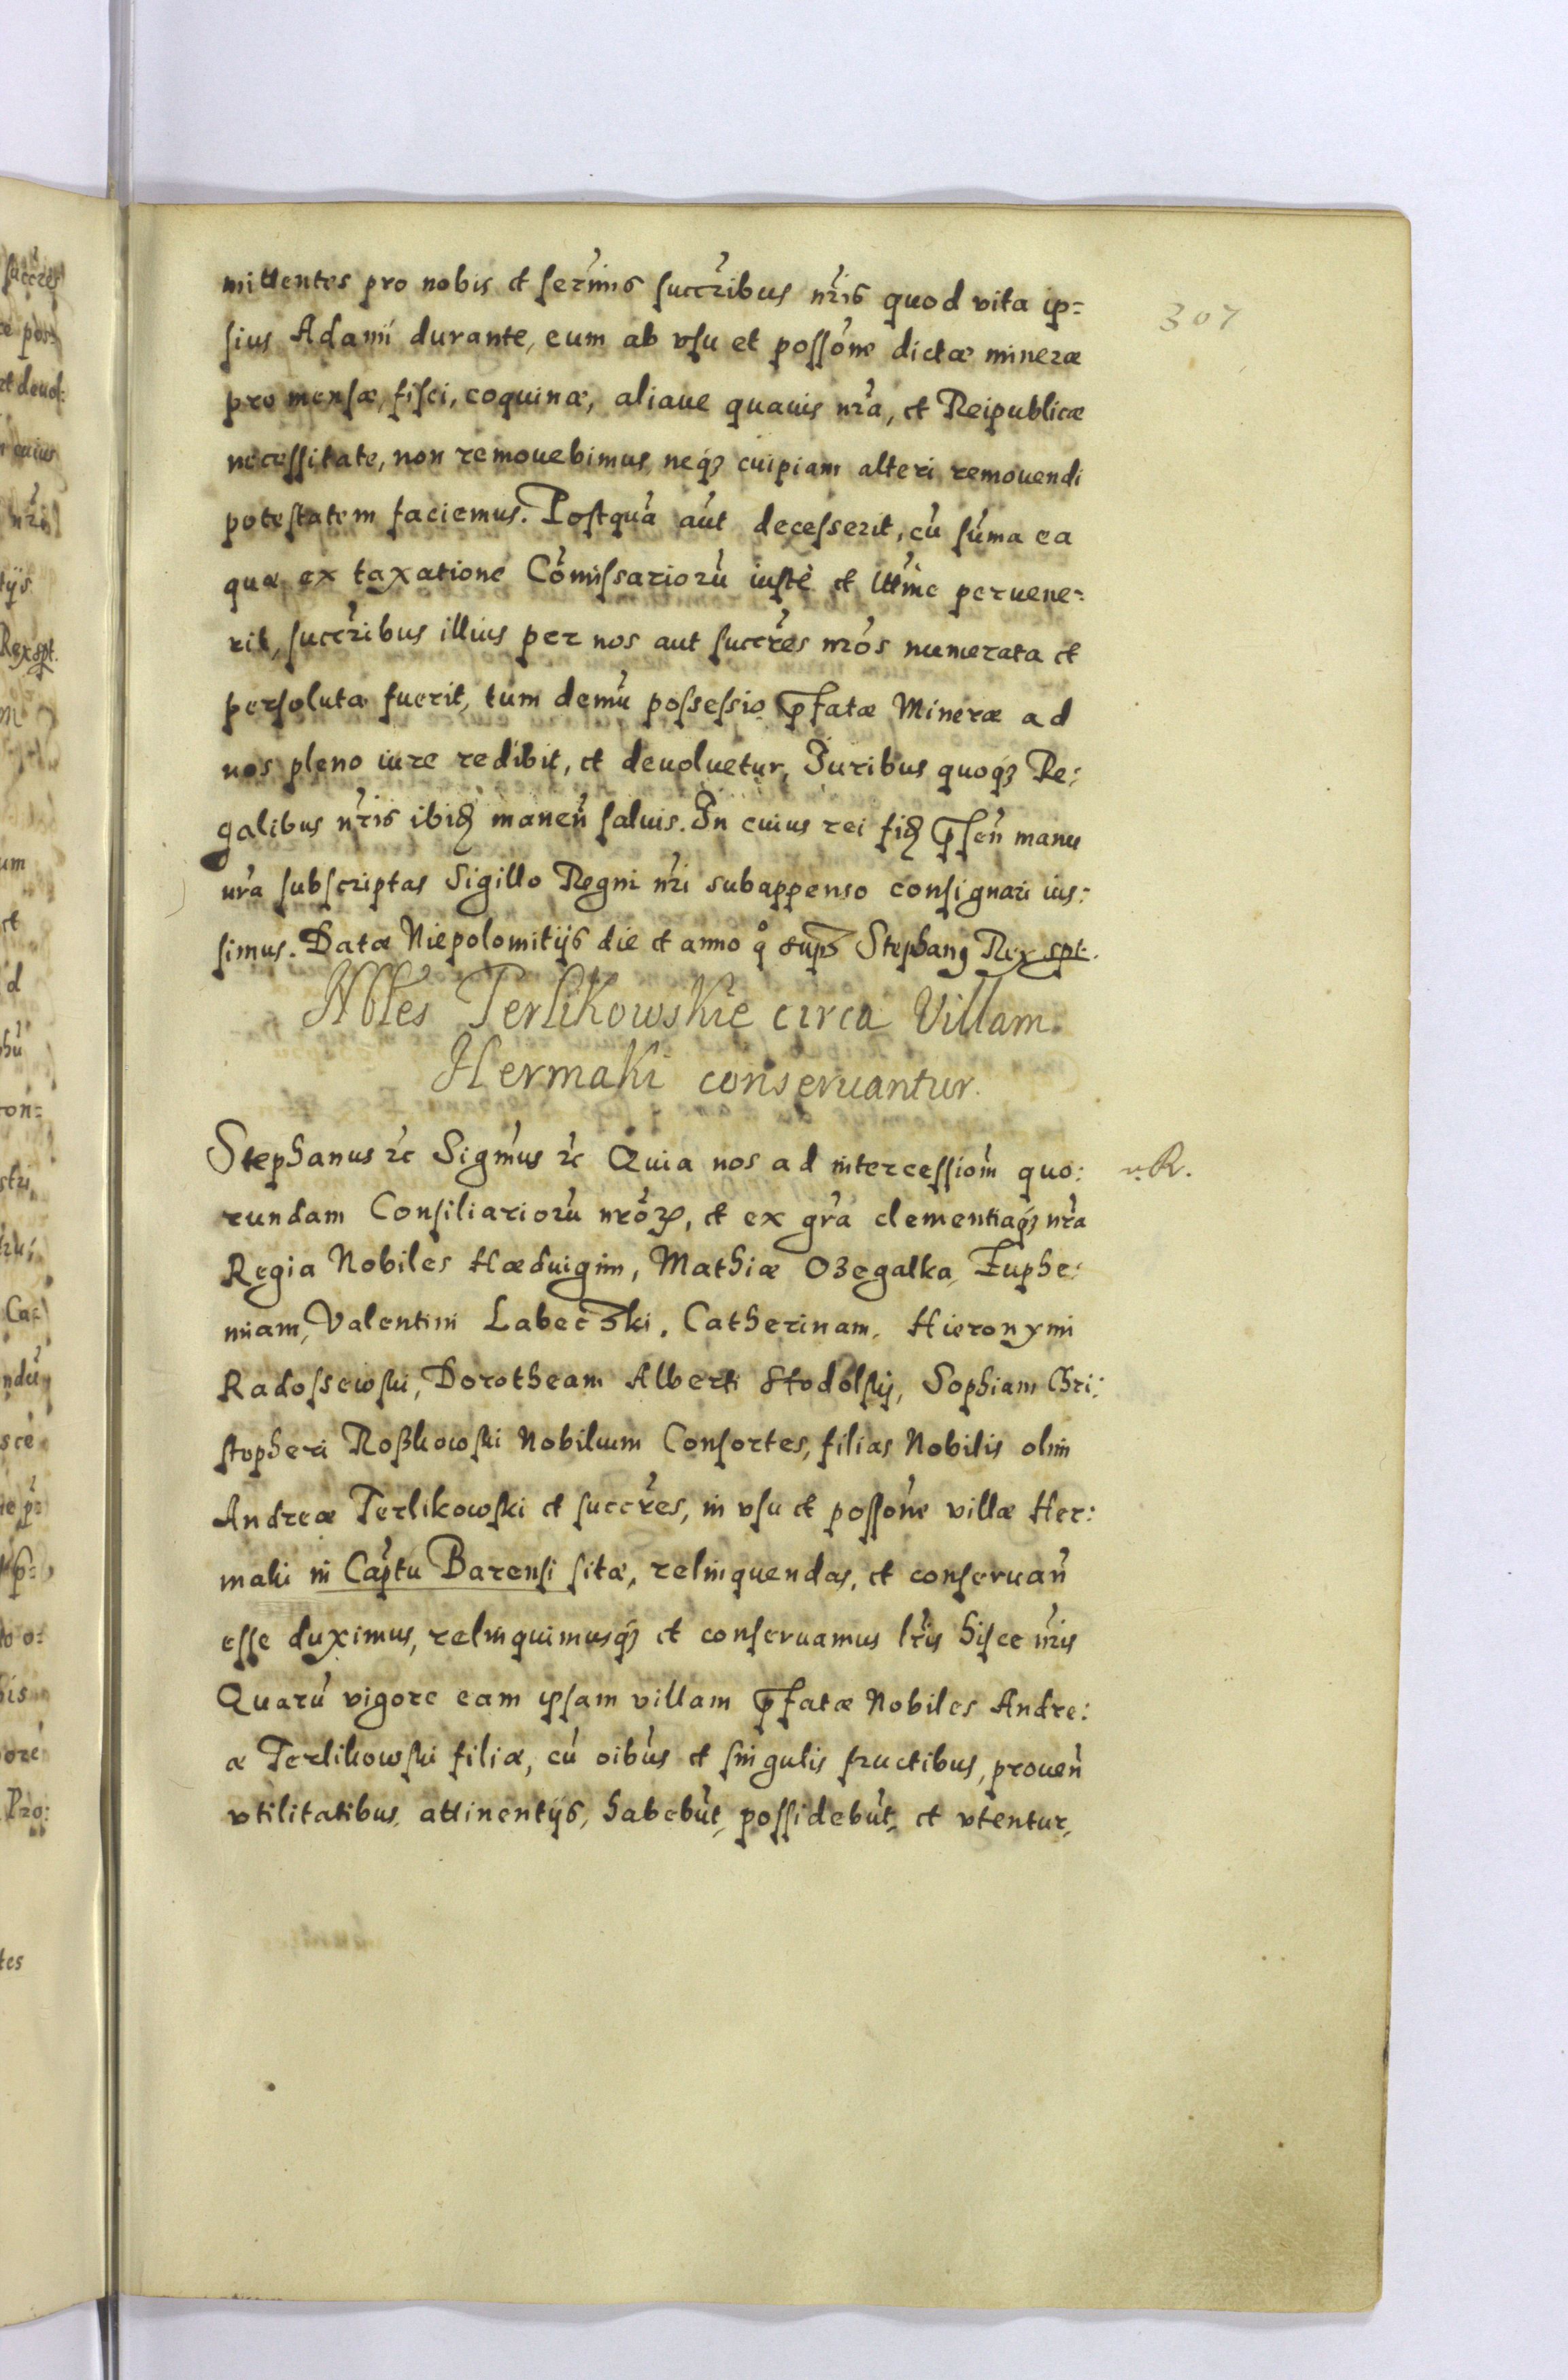 307
mittentes pro nobis et ser̃mis succr̃ibus nr̃is quod vita ip=
sius Adami durante, eum ab vsu et possõne dictæ mineræ
pro mensæ, fisci, coquinæ, aliaue quauis nr̃a, et Reipublicæ
necessitate, non remouebimus neq₃ cuipiam alteri remouendi
potestatem faciemus. Postquã aũt decesserit, cũ sũma ea
quæ ex taxatione Cõmissariorũ iustè et lttĩme peruene=
rit, succr̃ibus illius per nos aut succr̃es nrõs numerata et
persoluta fuerit, tum demũ possessio p̃fatæ Mineræ ad
nos pleno iure redibit, et deuoluetur, Juribus quoq₃ Re:
galibus nr̃is ibiꝺ maneñ saluis. In cuius rei fiꝺ p̃señ manu
nrã subscriptas Sigillo Regni nr̃i subappenso consignari ius:
simus. Datæ Niepolomitijs die et anno qͦ sup̃ Stephanꝯ Rex spt.
Nobles Terlikowskie circa Villam
Hermaki conseruantur.
Stephanus ꝛc Sigm̃us ꝛc Quia nos ad intercessiom̃ quo:
n. R.
rundam Consiliariorũ nrõꝝ, et ex gr̃a clementiaq₃ nr̃a
Regia Nobiles Hæduigim, Mathiæ Ozegalka, Euphe:
miam, Valentini Labec̃zki, Catherinam, Hieronymi
Radossewski, Dorotheam Alberti Stodolskij, Sophiam Chri:
stopheri Roßkowski Nobilium Consortes, filias Nobilis olim
Andreæ Terlikowski et succr̃es, in vsu et possõne villæ Her:
maki in Cap̃tu Barensi sitæ, relinquendas, et conseruañ
esse duximus, relinquimusq₃ et conseruamus lr̃is hisce nr̃is
Quarũ vigore eam ipsam villam p̃fatæ Nobiles Andre:
æ Terlikowski filiæ, cũ oib̃us et singulis fructibus, proueñ
vtilitatibus, attinentijs, habebũt, possidebũt, et vtentur,